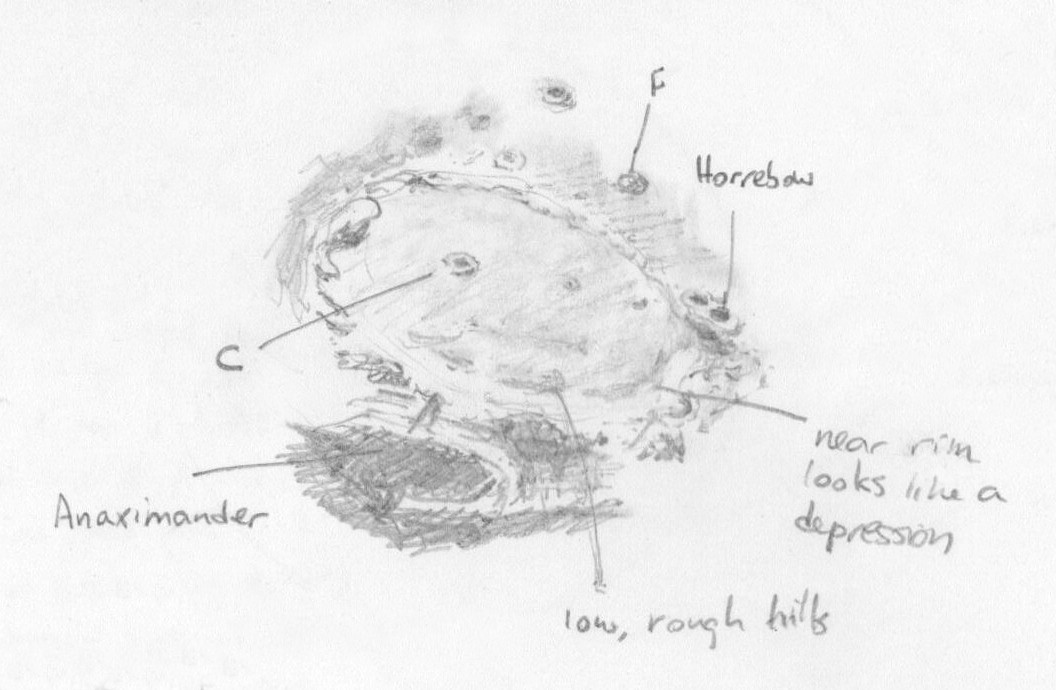 F
Horrebow
C
near rim
looks like a
depression
Anaximander
low, rough hills